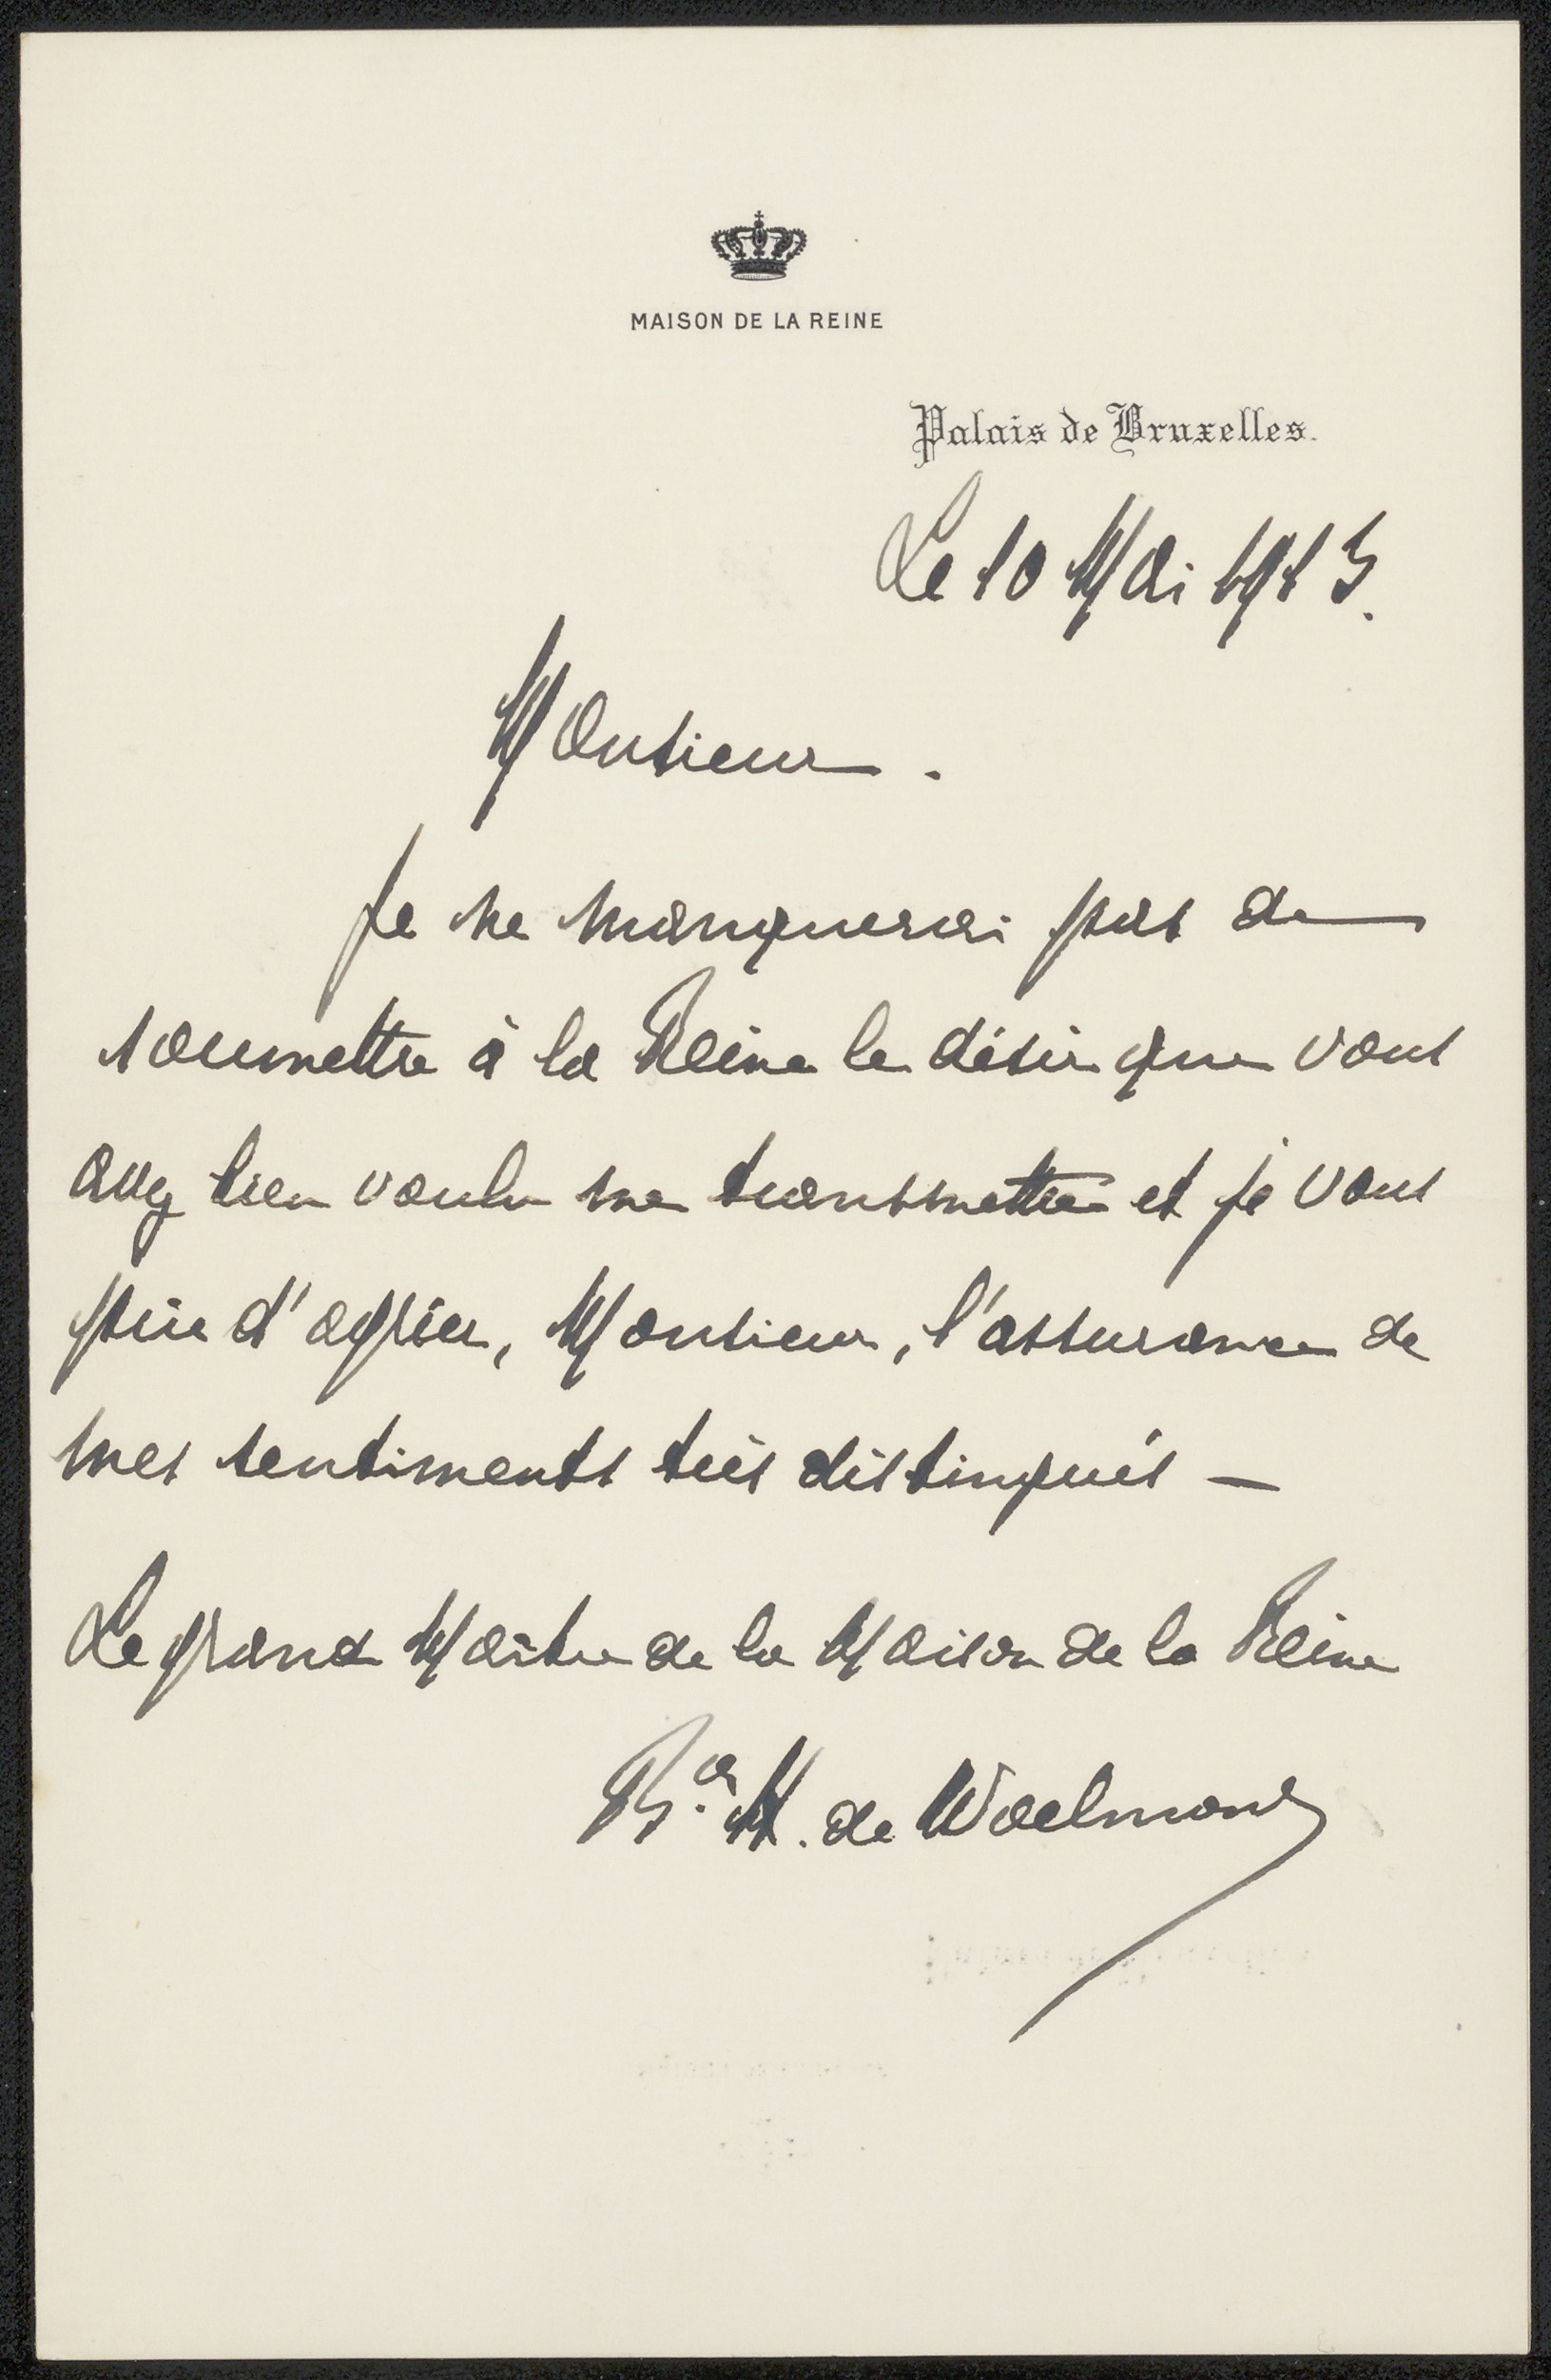 MAISON DE LA REINE
Palais de Bruxelles.
Le 10 Mai 1913.
Monsieur.
Je ne manquerai pas de
soumettre à la Reine le désir que vous
avez bien voulu me transmettre et je vous
prie d'agréer, Monsieur, l'assurance de
mes sentiments très distingués —
Le grand Maître de la Maison de la Reine
Bon H. de Woelmont